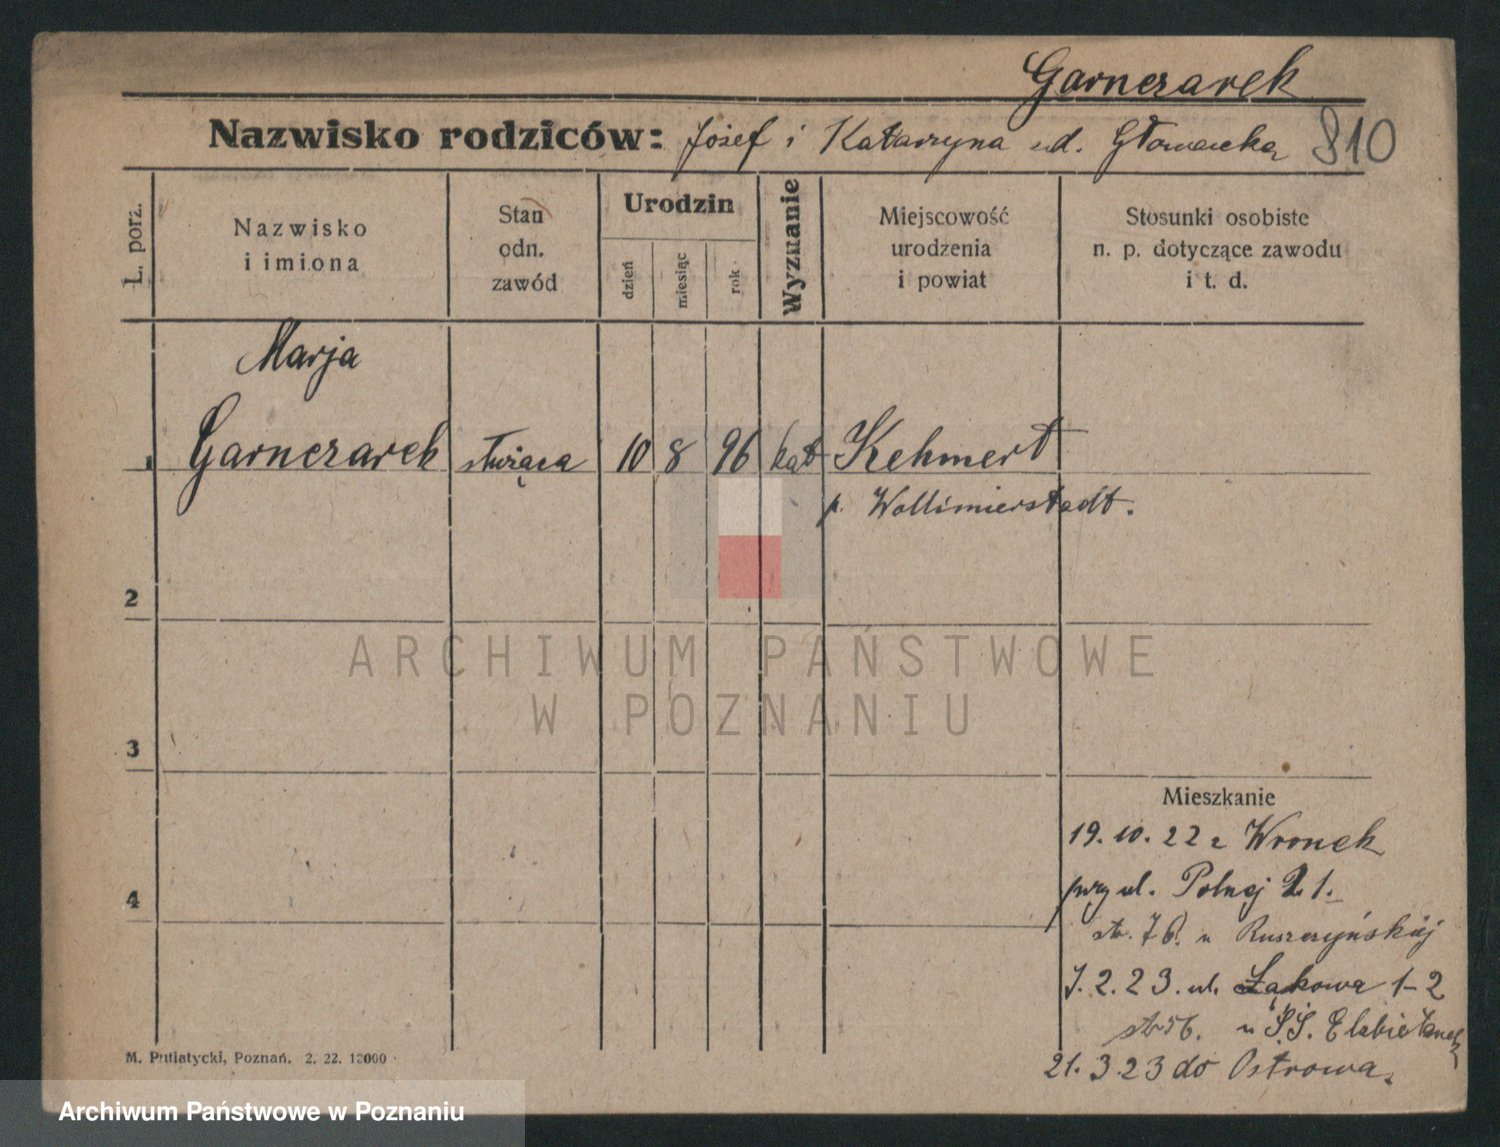 Garnczarek
Nazwisko rodziców: Józef i Katarzyna ud. Głowacka 810
L. porz.
Nazwisko
i imiona
Stan
odn.
zawód
Urodzin
dzień
miesiąc
rok
Wyznanie
Miejscowość
urodzenia
i powiat
Stosunki osobiste
n. p. dotyczące zawodu
i t. d.
Marja
1 Garnczarek służąca 10 8 96 kat Kehmert
p. Wollimierstadt.
2
3
4
Mieszkanie
19. 10. 22 z Wronek
przy ul. Polnej 21.
str. 76. u Ruszczyńskiej
7. 2. 23. ul. Łąkowa 1-2
str 56. u S.S. Elżbietanek
21. 3 23 do Ostrowa.
M. Putiatycki, Poznań. 2. 22. 12000
ARCHIWUM PAŃSTWOWE
W POZNANIU
Archiwum Państwowe w Poznaniu